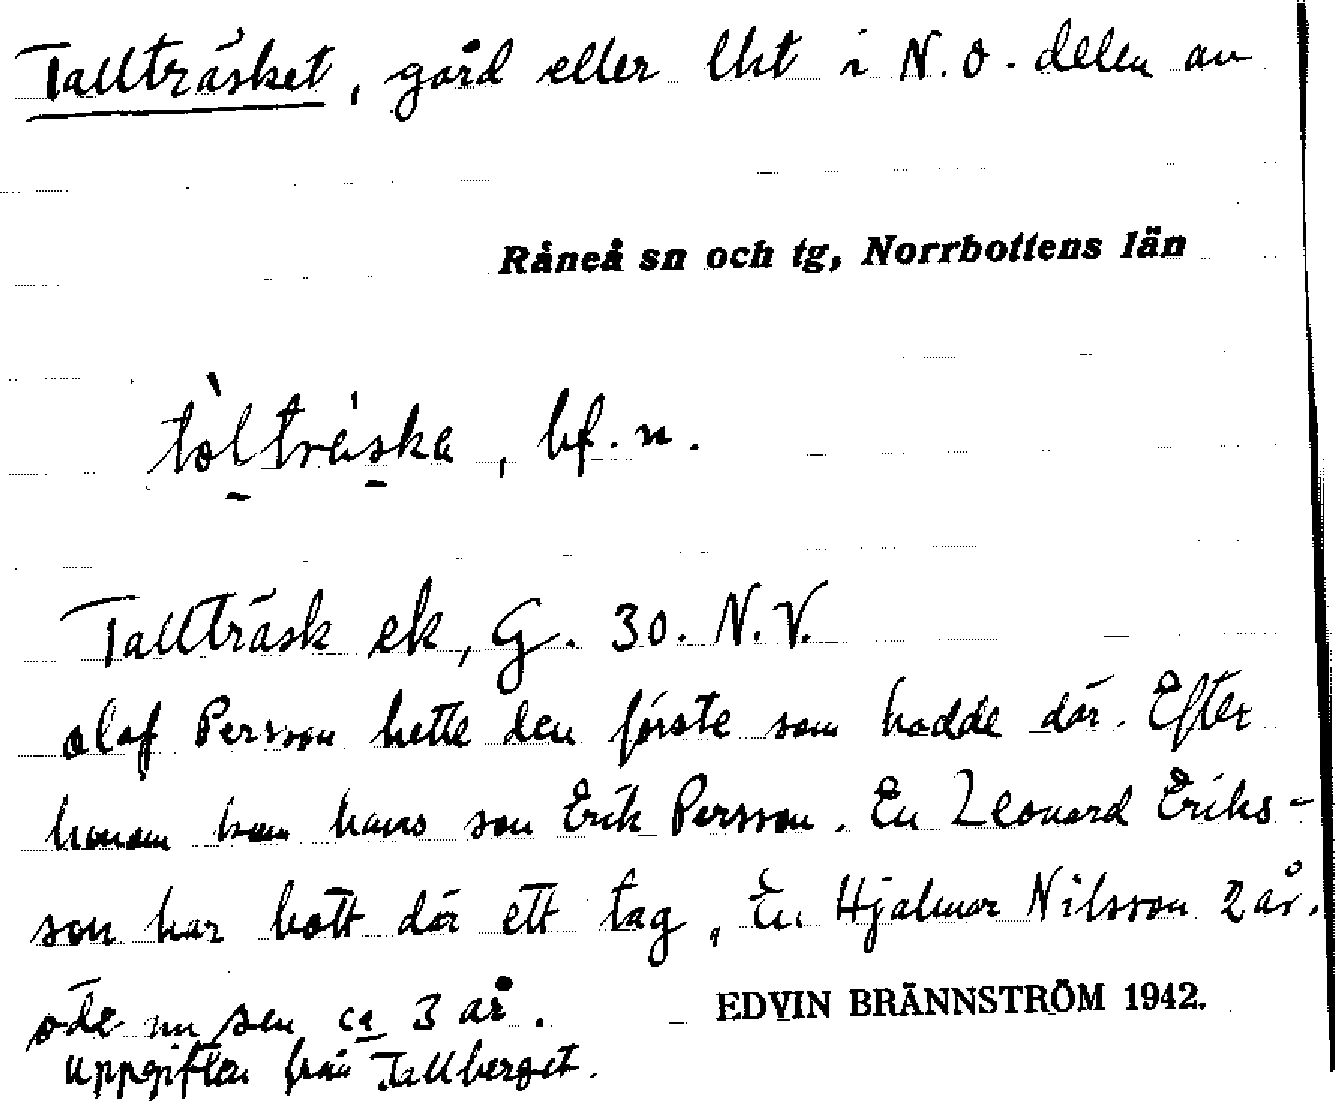 Tallträsket, gård eller lht i N.O. delen av
Råneå sn och tg, Norrbottens län
tòltrèska, bf. n.
Tallträsk ek, G. 30. N.V.
Olof Persson hette den förste som bodde där. Efter
honom kom hans son Erik Persson. En Leonard Eriks-
son har bott där ett tag, En Hjalmar Nilsson 2 år.
öde nu sen ca 3 år.
EDVIN BRÄNNSTRÖM 1942.
Uppgiften från Tallberget.